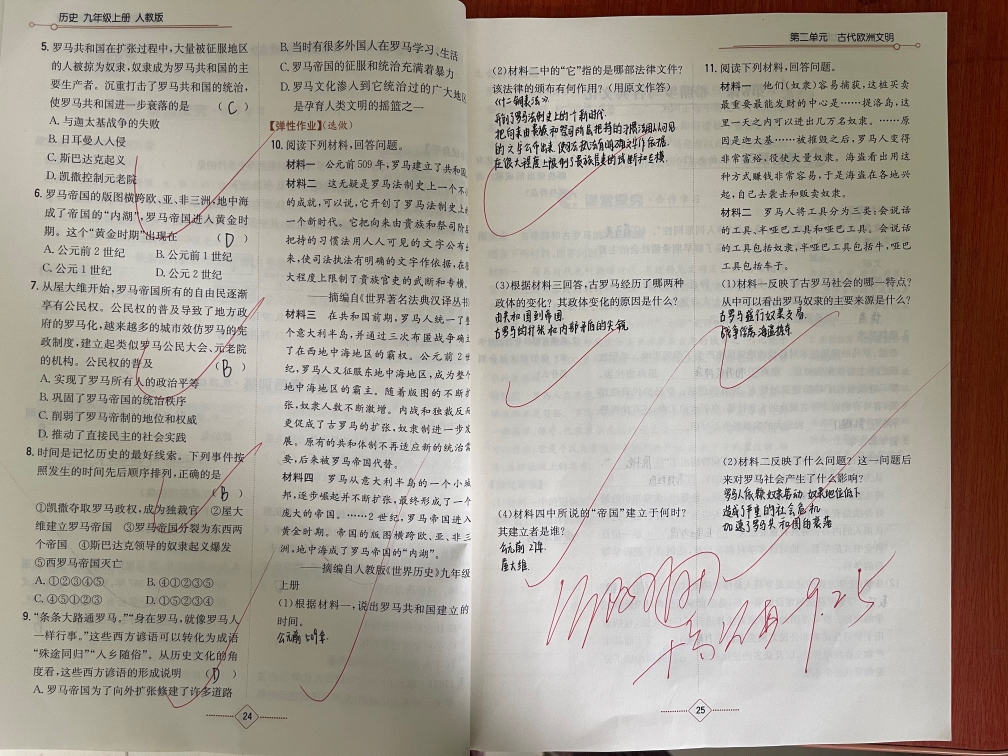 历史 九年级上册 人教版
5. 罗马共和国在扩张过程中,大量被征服地区
的人被掠为奴隶,奴隶成为罗马共和国的主
要生产者。沉重打击了罗马共和国的统治,
使罗马共和国进一步衰落的是 ( C )
A. 与迦太基战争的失败
B. 日耳曼人入侵
C. 斯巴达克起义
D. 凯撒控制元老院
6. 罗马帝国的版图横跨欧、亚、非三洲,地中海
成了帝国的“内湖”,罗马帝国进入黄金时
期。这个“黄金时期”出现在 ( D )
A. 公元前 2 世纪 B. 公元前 1 世纪
C. 公元 1 世纪 D. 公元 2 世纪
7. 从屋大维开始,罗马帝国所有的自由民逐渐
享有公民权。公民权的普及导致了地方政
府的罗马化,越来越多的城市效仿罗马的宪
政制度,建立起类似罗马公民大会、元老院
的机构。公民权的普及 ( B )
A. 实现了罗马所有人的政治平等
B. 巩固了罗马帝国的统治秩序
C. 削弱了罗马帝制的地位和权威
D. 推动了直接民主的社会实践
8. 时间是记忆历史的最好线索。下列事件按
照发生的时间先后顺序排列,正确的是
( B )
①凯撒夺取罗马政权,成为独裁官 ②屋大
维建立罗马帝国 ③罗马帝国分裂为东西两
个帝国 ④斯巴达克领导的奴隶起义爆发
⑤西罗马帝国灭亡
A. ①②③④⑤ B. ④①②③⑤
C. ④⑤①②③ D. ①⑤②③④
9. “条条大路通罗马,”“身在罗马,就像罗马人
一样行事。”这些西方谚语可以转化为成语
“殊途同归”“入乡随俗”。从历史文化的角
度看,这些西方谚语的形成说明 ( D )
A. 罗马帝国为了向外扩张修建了许多道路
24
B. 当时有很多外国人在罗马学习、生活
C. 罗马帝国的征服和统治充满着暴力
D. 罗马文化渗入到它统治过的广大地区
是孕育人类文明的摇篮之一
【弹性作业】(选做)
10. 阅读下列材料,回答问题。
材料一 公元前 509 年,罗马建立了共和国
材料二 这无疑是罗马法制史上一个不小
的成就,可以说,它开创了罗马法制史上的
一个新时代。它把向来由贵族和祭司阶层
把持的习惯法用人人可见的文字公布出
来,使司法执法有明确的文字依据,在很
大程度上限制了贵族官吏的武断和专横。
——摘编自《世界著名法典汉译丛书
材料三 在共和国前期,罗马人统一了整
个意大利半岛,并通过三次布匿战争确立
了在西地中海地区的霸权。公元前 2 世
纪,罗马人又征服东地中海地区,成为整个
地中海地区的霸主。随着版图的不断扩
张,奴隶人数不断激增。内战和独裁反而
更促成了古罗马的扩张,奴隶制进一步发
展。原有的共和体制不再适应新的统治需
要,后来被罗马帝国代替。
材料四 罗马从意大利半岛的一个小城
邦,逐步崛起并不断扩张,最终形成了一个
庞大的帝国。……2 世纪,罗马帝国进入
黄金时期。帝国的版图横跨欧、亚、非三
洲,地中海成了罗马帝国的“内湖”。
——摘编自人教版《世界历史》九年级
上册
(1)根据材料一,说出罗马共和国建立的
时间。
公元前509年.
第二单元 古代欧洲文明
(2)材料二中的“它”指的是哪部法律文件?
该法律的颁布有何作用?(用原文作答)
《十二铜表法》.
开创了罗马法制史上的一个新时代.
把向来由贵族和祭司阶层把持的习惯法用人人可见
的文字公布出来,使司法执法有明确的文字依据.
在很大程度上限制了贵族官吏的武断和专横.
(3)根据材料三回答,古罗马经历了哪两种
政体的变化?其政体变化的原因是什么?
由共和国到帝国.
古罗马的扩张和内部矛盾的尖锐
(4)材料四中所说的“帝国”建立于何时?
其建立者是谁?
公元前 27年.
屋大维.
25
11. 阅读下列材料,回答问题。
材料一 他们(奴隶)容易捕获,这桩买卖
最重要最能发财的中心是……提洛岛,这
里一天之内可以进出几万名奴隶。……原
因是迦太基……被摧毁之后,罗马人变得
非常富裕,役使大量奴隶。海盗看出用这
种方式赚钱非常容易,于是海盗在各地兴
起,自己去袭击和贩卖奴隶。
材料二 罗马人将工具分为三类:会说话
的工具、半哑巴工具和哑巴工具。会说话
的工具包括奴隶,半哑巴工具包括牛,哑巴
工具包括车子。
(1)材料一反映了古罗马社会的哪一特点?
从中可以看出罗马奴隶的主要来源是什么?
古罗马盛行奴隶交易.
战争俘虏 海盗掠夺
(2)材料二反映了什么问题?这一问题后
来对罗马社会产生了什么影响?
罗马人依赖奴隶劳动 奴隶地位低下
造成了严重的社会危机
加速了罗马共和国的衰落
9.25